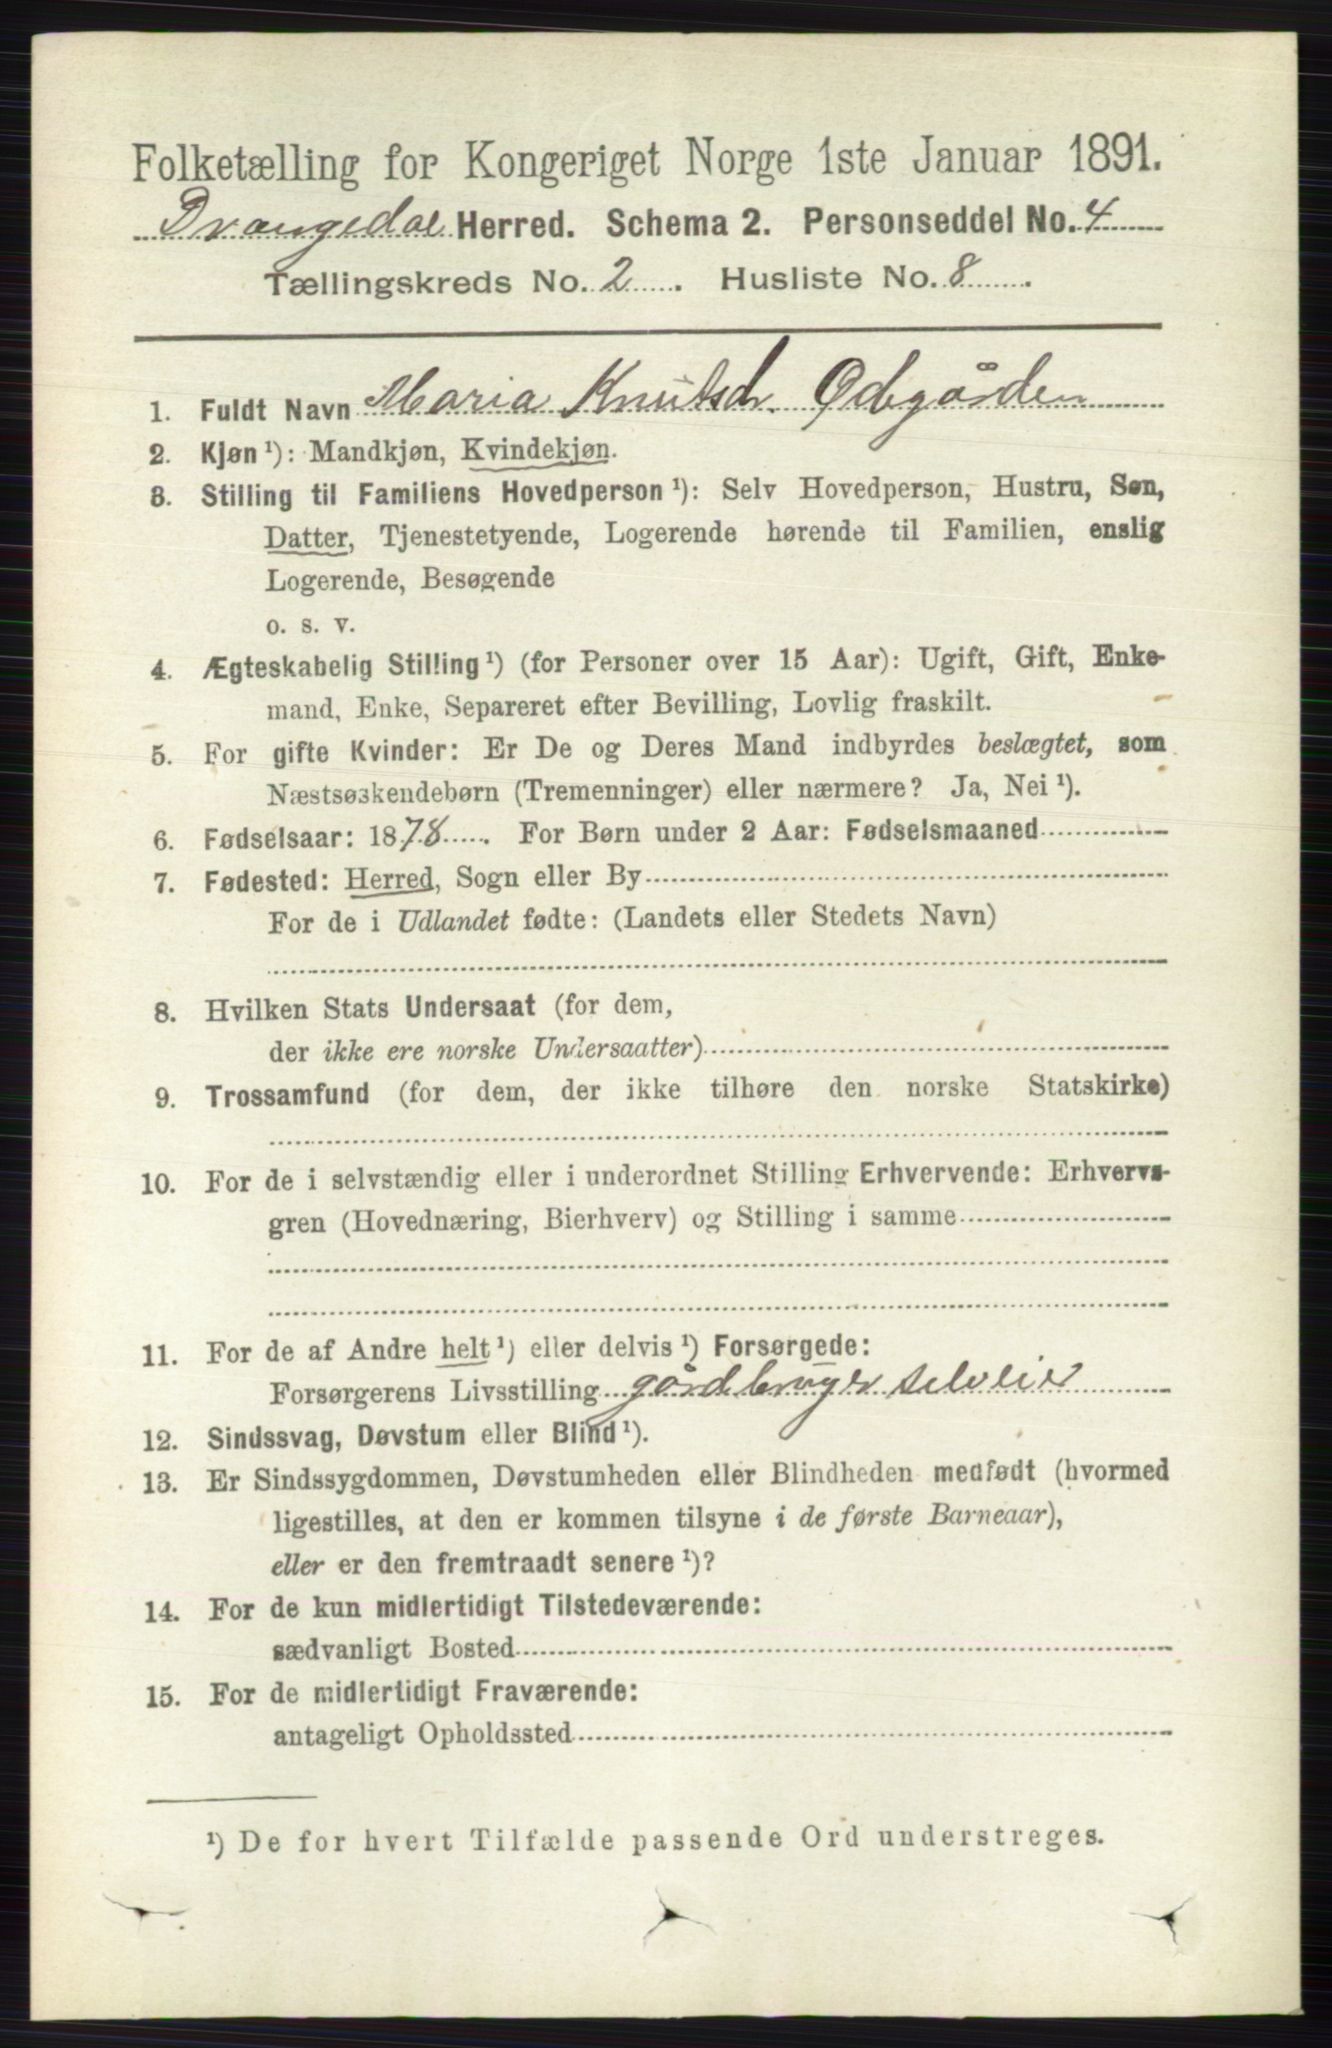 Folketælling for Kongeriget Norge 1ste Januar 1891.
Drangedal Herred. Schema 2. Personseddel No. 4
Tællingskreds No. 2. Husliste No. 8.
1. Fuldt Navn Maria Knutsdr. Ødegården
2. Kjøn ¹): Mandkjøn, Kvindekjøn.
3. Stilling til Familiens Hovedperson ¹): Selv Hovedperson, Hustru, Søn,
Datter, Tjenestetyende, Logerende hørende til Familien, enslig
Logerende, Besøgende
o. s. v.
4. Ægteskabelig Stilling ¹) (for Personer over 15 Aar): Ugift, Gift, Enke-
mand, Enke, Separeret efter Bevilling, Lovlig fraskilt.
5. For gifte Kvinder: Er De og Deres Mand indbyrdes beslægtet, som
Næstsøskendebørn (Tremenninger) eller nærmere? Ja, Nei ¹).
6. Fødselsaar: 1878. For Børn under 2 Aar: Fødselsmaaned
7. Fødested: Herred, Sogn eller By
For de i Udlandet fødte: (Landets eller Stedets Navn)
8. Hvilken Stats Undersaat (for dem,
der ikke ere norske Undersaatter)
9. Trossamfund (for dem, der ikke tilhøre den norske Statskirke)
10. For de i selvstændig eller i underordnet Stilling Erhvervende: Erhvervs-
gren (Hovednæring, Bierhverv) og Stilling i samme
11. For de af Andre helt ¹) eller delvis ¹) Forsørgede:
Forsørgerens Livsstilling gårdbruger selveier
12. Sindssvag, Døvstum eller Blind ¹).
13. Er Sindssygdommen, Døvstumheden eller Blindheden medfødt (hvormed
ligestilles, at den er kommen tilsyne i de første Barneaar),
eller er den fremtraadt senere ¹)?
14. For de kun midlertidigt Tilstedeværende:
sædvanligt Bosted
15. For de midlertidigt Fraværende:
antageligt Opholdssted
¹) De for hvert Tilfælde passende Ord understreges.